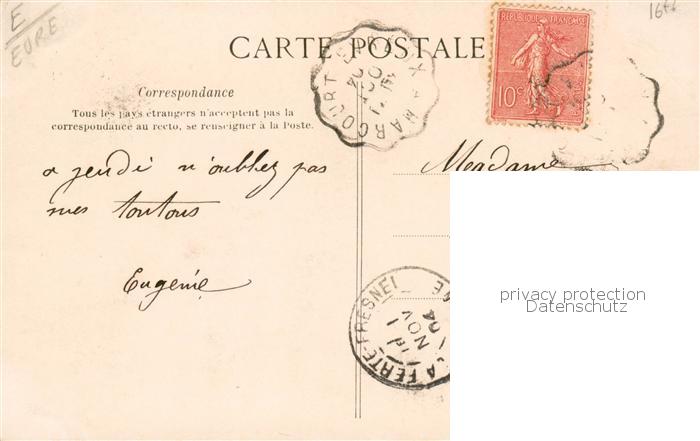 E
EURE
CARTE POSTALE
RÉPUBLIQUE FRANÇAISE
10c
Correspondance
Tous les pays étrangers n'acceptent pas la
correspondance au recto, se renseigner à la Poste.
a jeudi n'oubliez pas
mes toutous
Eugénie
Madame
MARCOURT
LA FERTÉ-FRESNEL
1
NOV
04
privacy protection
Datenschutz